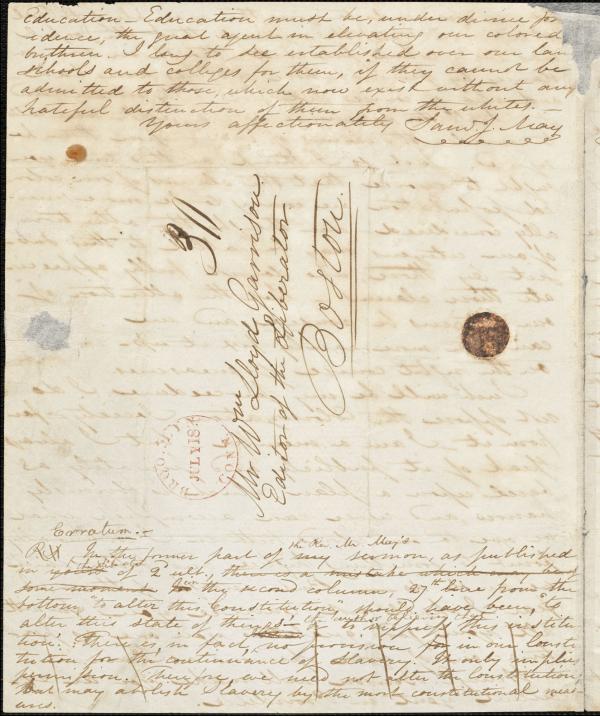 Education – Education must be, under divine prov
idence, the great agent in elevating our colored
brethren. I long to see established over our land
schools and colleges for them, if they cannot be
admitted to those, which now exist without any
hateful distinction of them from the whites. –
Yours affectionately Saml. J. May
3/
Mr Wm Lloyd Garrison
Editor of the Liberator
Boston.
BROO CONN
JULY 18
Erratum. –
In the former part of my sermon, as published
the Rev. Mr. May's
in yours of 2 ult., there is a mistake which may
some moment In the second column, 27th line from the
bottom "to alter this constitution" should have been, "to
alter this state of things –
support this institu
tion." There is, in fact, no provision for in our Consti
tution for the continuance of Slavery. It only implies
permission. Therefore, we need not alter the Constitution
but may abolish Slavery by the most constitutional meas
ures.